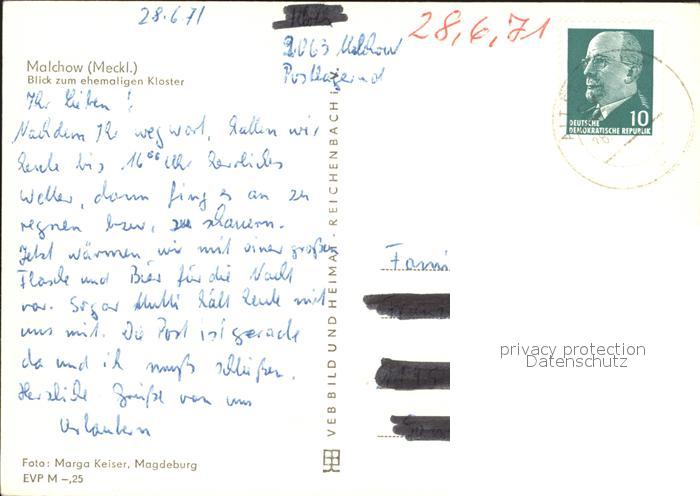 28.6.71
28,6,71
2063 Malchow
Postlagernd
Malchow (Meckl.)
Blick zum ehemaligen Kloster
Ihr Lieben!
Nachdem Ihr weg wart, hatten wir
heute bis 16°° Uhr herrliches
Wetter, dann fing es an zu
regnen bzw. zu schauern.
Jetzt wärmen wir mit einer großen
Flasche und Bier für die Nacht
vor. Sogar Mutti hält heute mit
uns mit. Die Post ist gerade
da und ich muß schließen.
Herzliche Grüße von uns
Urlaubern
Foto: Marga Keiser, Magdeburg
EVP M –,25
VEB BILD UND HEIMAT REICHENBACH i. V.
10
DEUTSCHE
DEMOKRATISCHE REPUBLIK
Fami
privacy protection
Datenschutz